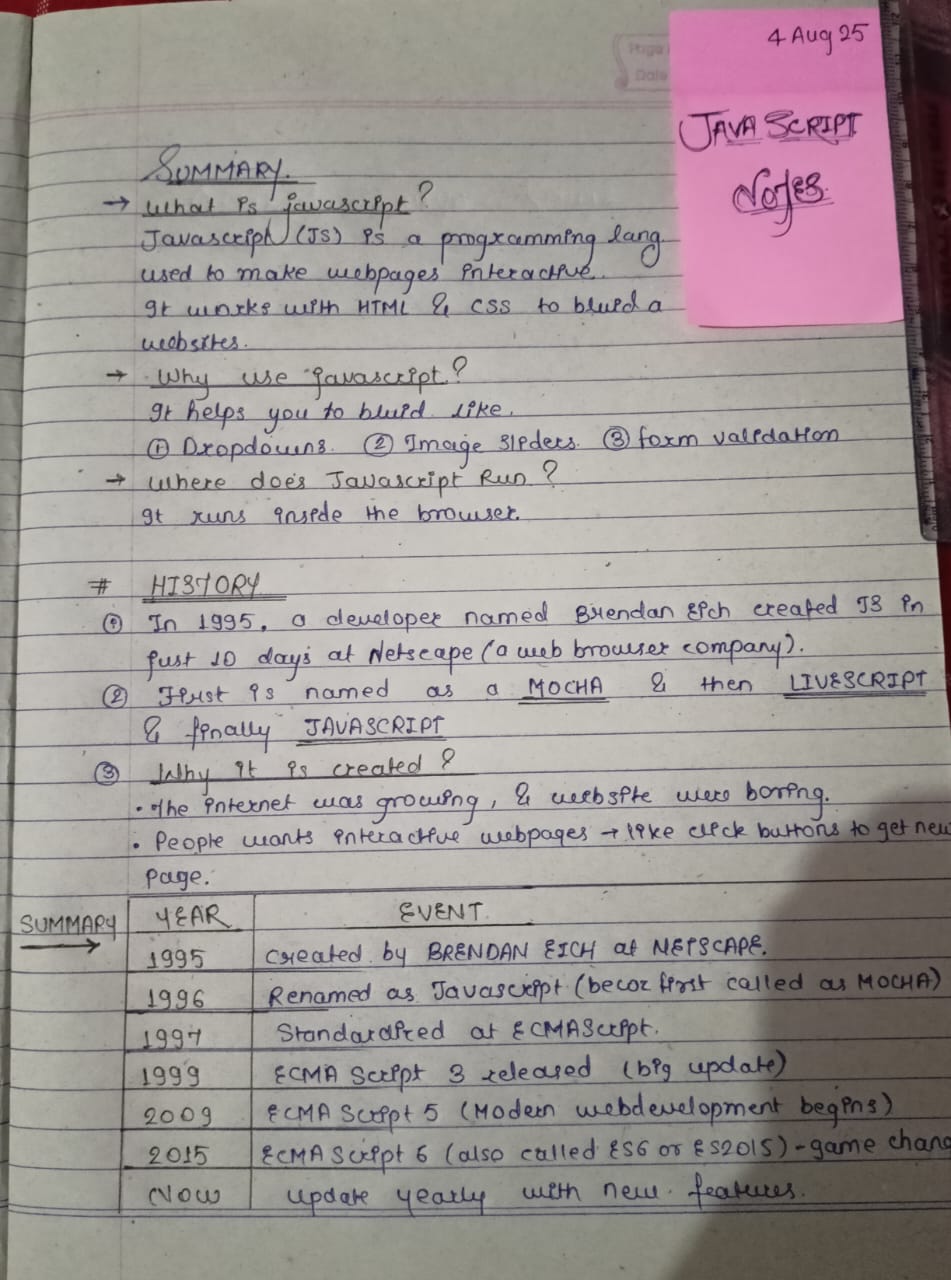 Page
Date
4 Aug 25
JAVA SCRIPT
Notes
SUMMARY.
→ What is javascript?
Javascript (JS) is a programming lang
used to make webpages interactive.
It works with HTML & CSS to bluid a
websites.
→ Why use javascript?
It helps you to bluid like.
① Dropdowns. ② Image Sliders. ③ form validation
→ Where does Javascript Run?
It runs inside the browser.
# HISTORY
① In 1995, a developer named Brendan Eich created JS in
just 10 days at Netscape (a web browser company).
② First is named as a MOCHA & then LIVESCRIPT
& finally JAVASCRIPT
③ Why it is created?
• The internet was growing, & website were boring.
• People wants interactive webpages → like click buttons to get new
page.
SUMMARY → YEAR EVENT.
1995 created by BRENDAN EICH at NETSCAPE.
1996 Renamed as Javascript (becoz first called as MOCHA)
1997 Standardized at ECMAScript.
1999 ECMA Script 3 released (big update)
2009 ECMA Script 5 (Modern webdevelopment begins)
2015 ECMA Script 6 (also called ES6 or ES2015) - game chang
Now update yearly with new features.